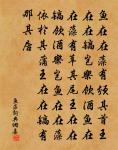 魚在在藻有頒其首王
在在鎬豈樂飲酒魚在
在藻有莘其尾王在在
鎬飲酒樂豈魚在在藻
依於其蒲王在在鎬有
那其居